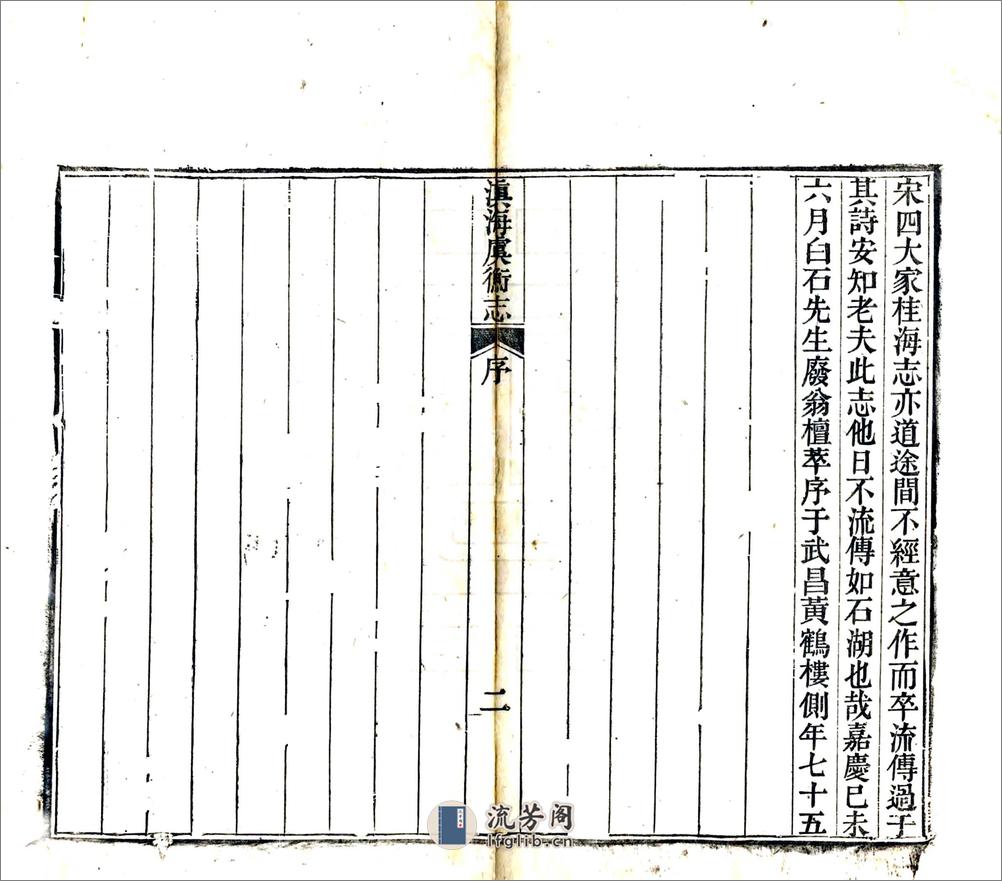 宋四大家桂海志亦道途間不經意之作而卒流傳過于
其詩安知老夫此志他日不流傳如石湖也哉嘉慶己未
六月白石先生廢翁檀萃序于武昌黃鶴樓側年七十五
滇海虞衡志
序
二
流芳阁
lfglib.cn